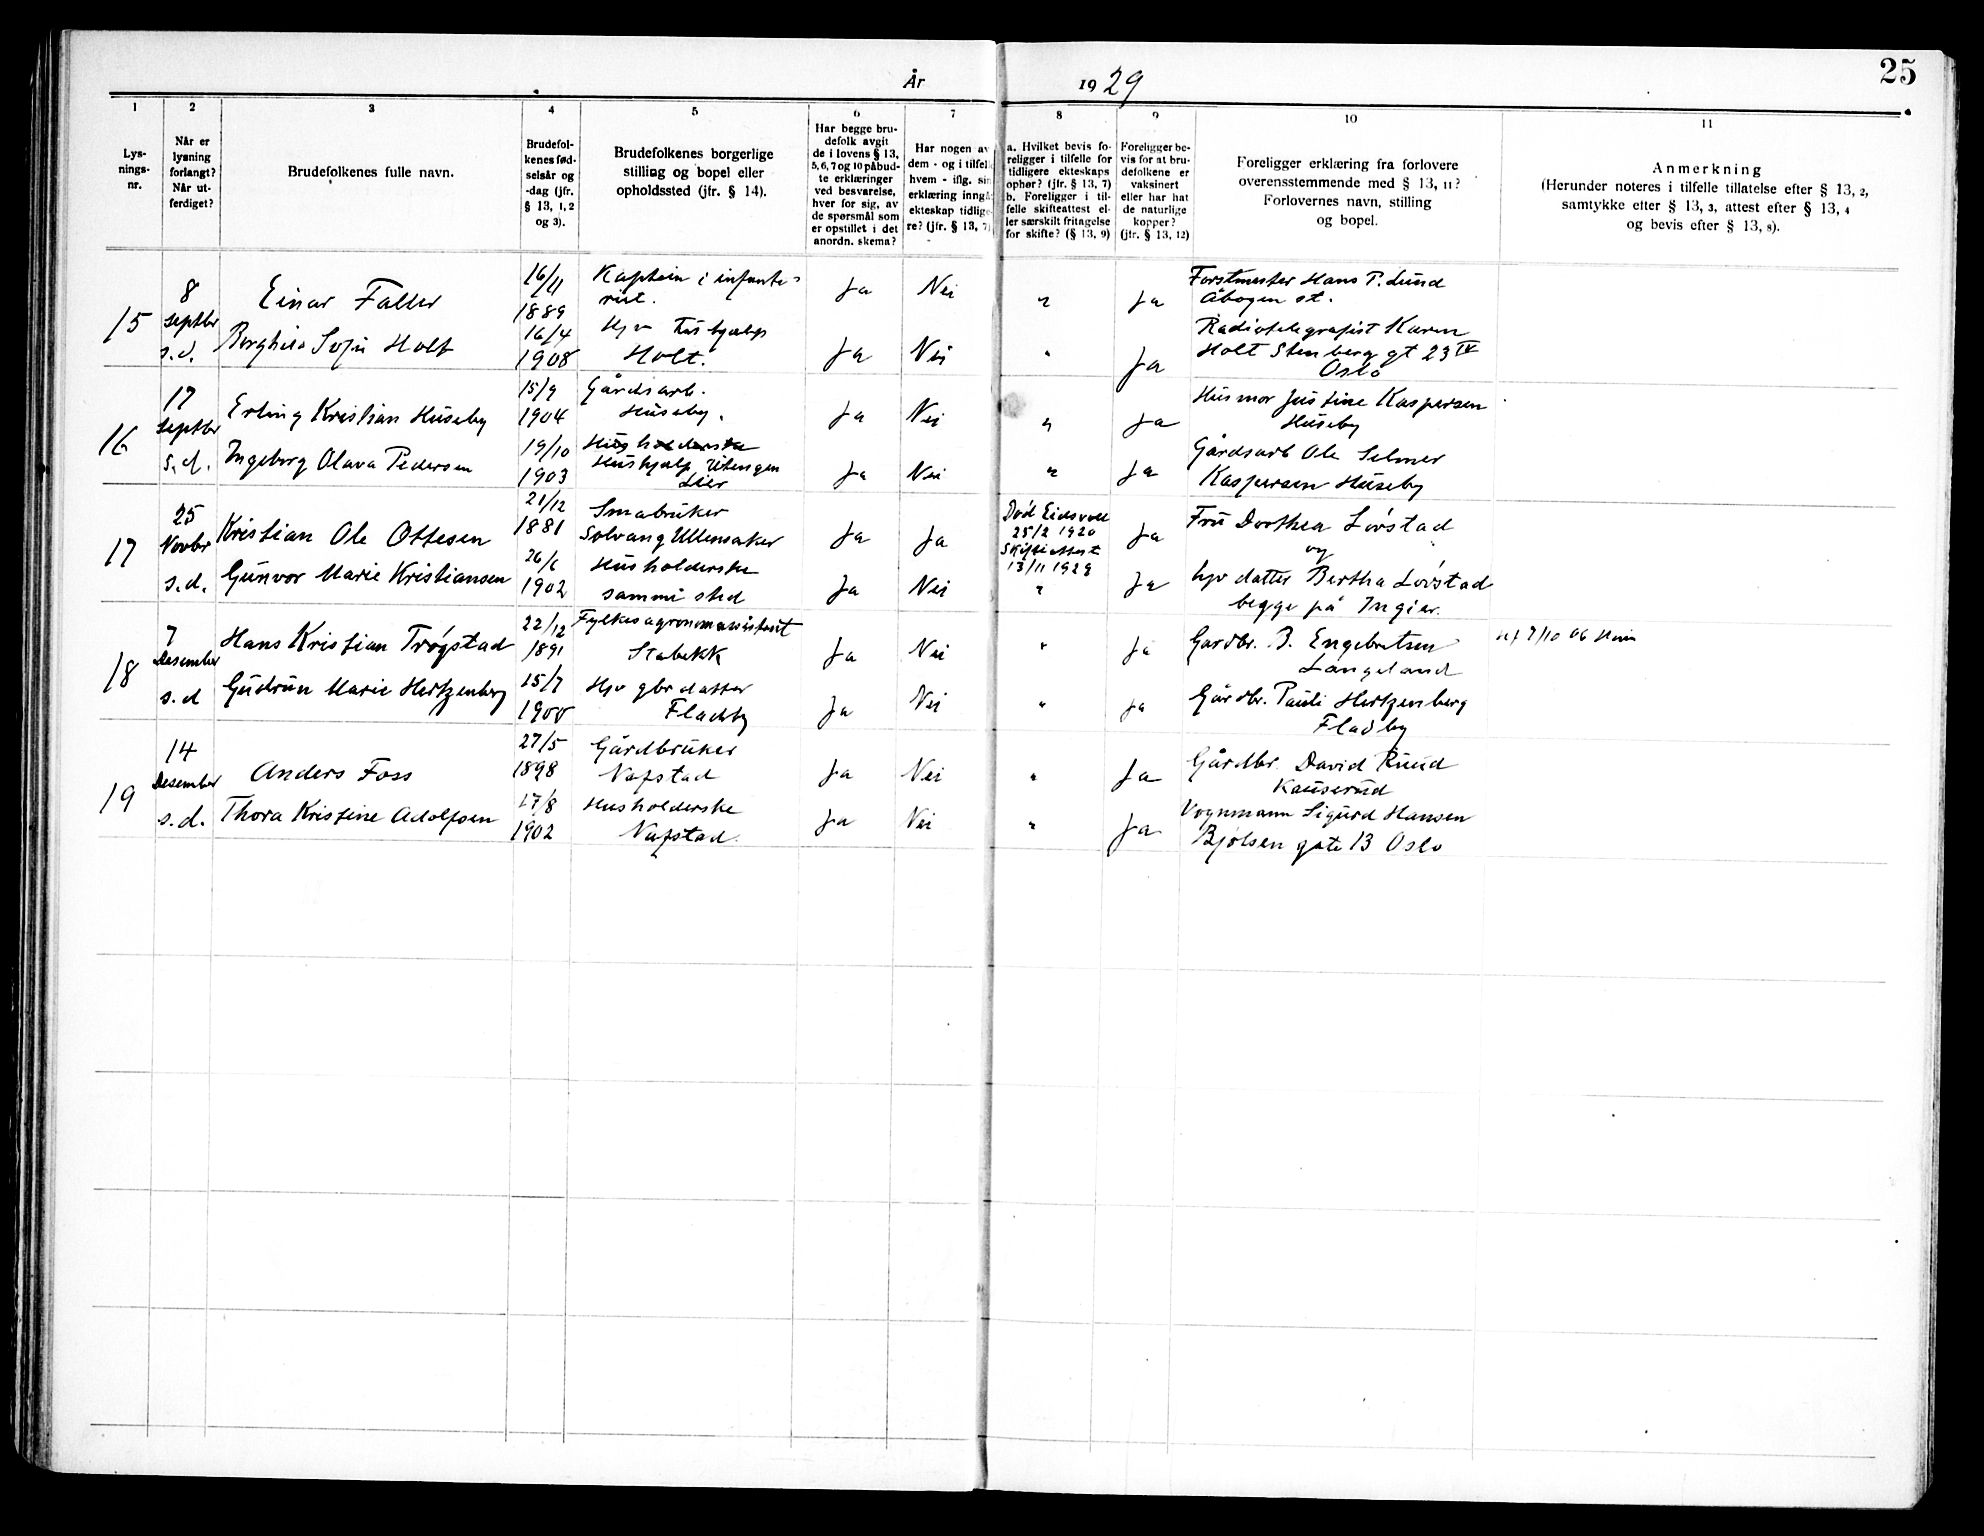 År 1929
25
1
2
3
4
5
6
7
8
9
10
11
Lys-
nings-
nr.
Når er
lysning
forlangt?
Når ut-
ferdiget?
Brudefolkenes fulle navn.
Brudefol-
kenes fød-
selsår og
-dag (jfr.
§ 13, 1, 2
og 3).
Brudefolkenes borgerlige
stilling og bopel eller
opholdssted (jfr. § 14).
Har begge bru-
defolk avgit
de i lovens § 13,
5, 6, 7 og 10 påbud-
te erklæringer
ved besvarelse,
hver for sig, av
de spørsmål som
er opstillet i det
anordn. skema?
Har nogen av
dem - og i tilfel
hvem - iflg. sin
erklæring inngå
ekteskap tidlige-
re? (jfr. § 13, 7)
a. Hvilket bevis fo-
religger i tilfelle for
tidligere ekteskaps
ophør? (jfr. § 13, 7)
b. Foreligger i til-
felle skifteattest el-
ler særskilt fritagelse
for skifte? (§ 13, 9)
Foreligger be-
vis for at bru-
defolkene er
vaksinert
eller har hat
de naturlige
kopper?
(jfr. § 13, 12)
Foreligger erklæring fra forlovere
overensstemmende med § 13, 11?
Forlovernes navn, stilling
og bopel.
Anmerkning
(Herunder noteres i tilfelle tillatelse efter § 13, 2,
samtykke etter § 13, 3, attest efter § 13, 4
og bevis efter § 13, 8).
15
8
Septbr
s.d.
Einar Faller
Borghild Sofie Holt
16/11
1889
16/4
1908
Kaptein i infante-
riet.
Hjv Hushjælp
Holt.
Ja
Ja
Nei
Nei
"
"
Ja
Ja
Forstmester Hans P. Lund
Åbogen st.
Radiotelegrafist Karen
Holt Stenberg gt 23 IV
Oslo
16
17
Septbr
s.d.
Erling Kristian Huseby
Ingeborg Olava Pedersen
15/9
1904
19/10
1903
Gårdsarb.
Huseby.
Husholderske
Hushjælp Utengen
Lier
Ja
Ja
Nei
Nei
"
"
Ja
Ja
Husmor Justine Kaspersen
Huseby
Gårdsarb Ole Selmer
Kaspersen Huseby
17
25
Novbr
s.d.
Kristian Ole Ottesen
Gunvor Marie Kristiansen
21/12
1881
26/6
1902
Småbruker
Solvang Ullensaker
Husholderske
samme sted
Ja
Ja
Ja
Nei
Død Eidsvoll
25/2 1920
Skifteattest
13/11 1929
"
Ja
Ja
Fru Dorthea Løvstad
og
hjv datter Bertha Løvstad
begge på Ingier.
18
7
Desember
s.d
Hans Kristian Trøgstad
Gudrun Marie Hertzenberg
22/12
1891
15/7
1900
Fylkesagronomassistent
Stabekk
Hjv gbr datter
Fladby
Ja
Ja
Nei
Nei
"
"
Ja
Ja
Gardbr. B. Engebretsen
Langeland
Gårdbr. Pauli Hertzenberg
Fladby
7/10 06
19
14
Desember
s.d.
Anders Foss
Thora Kristine Adolfsen
27/5
1898
17/8
1902
Gårdbruker
Nafstad
Husholderske
Nafstad.
Ja
Ja
Nei
Nei
"
"
Ja
Ja
Gårdbr. David Ruud
Kauserud
Vognmann Sigurd Hansen
Bjølsen gate 13 Oslo